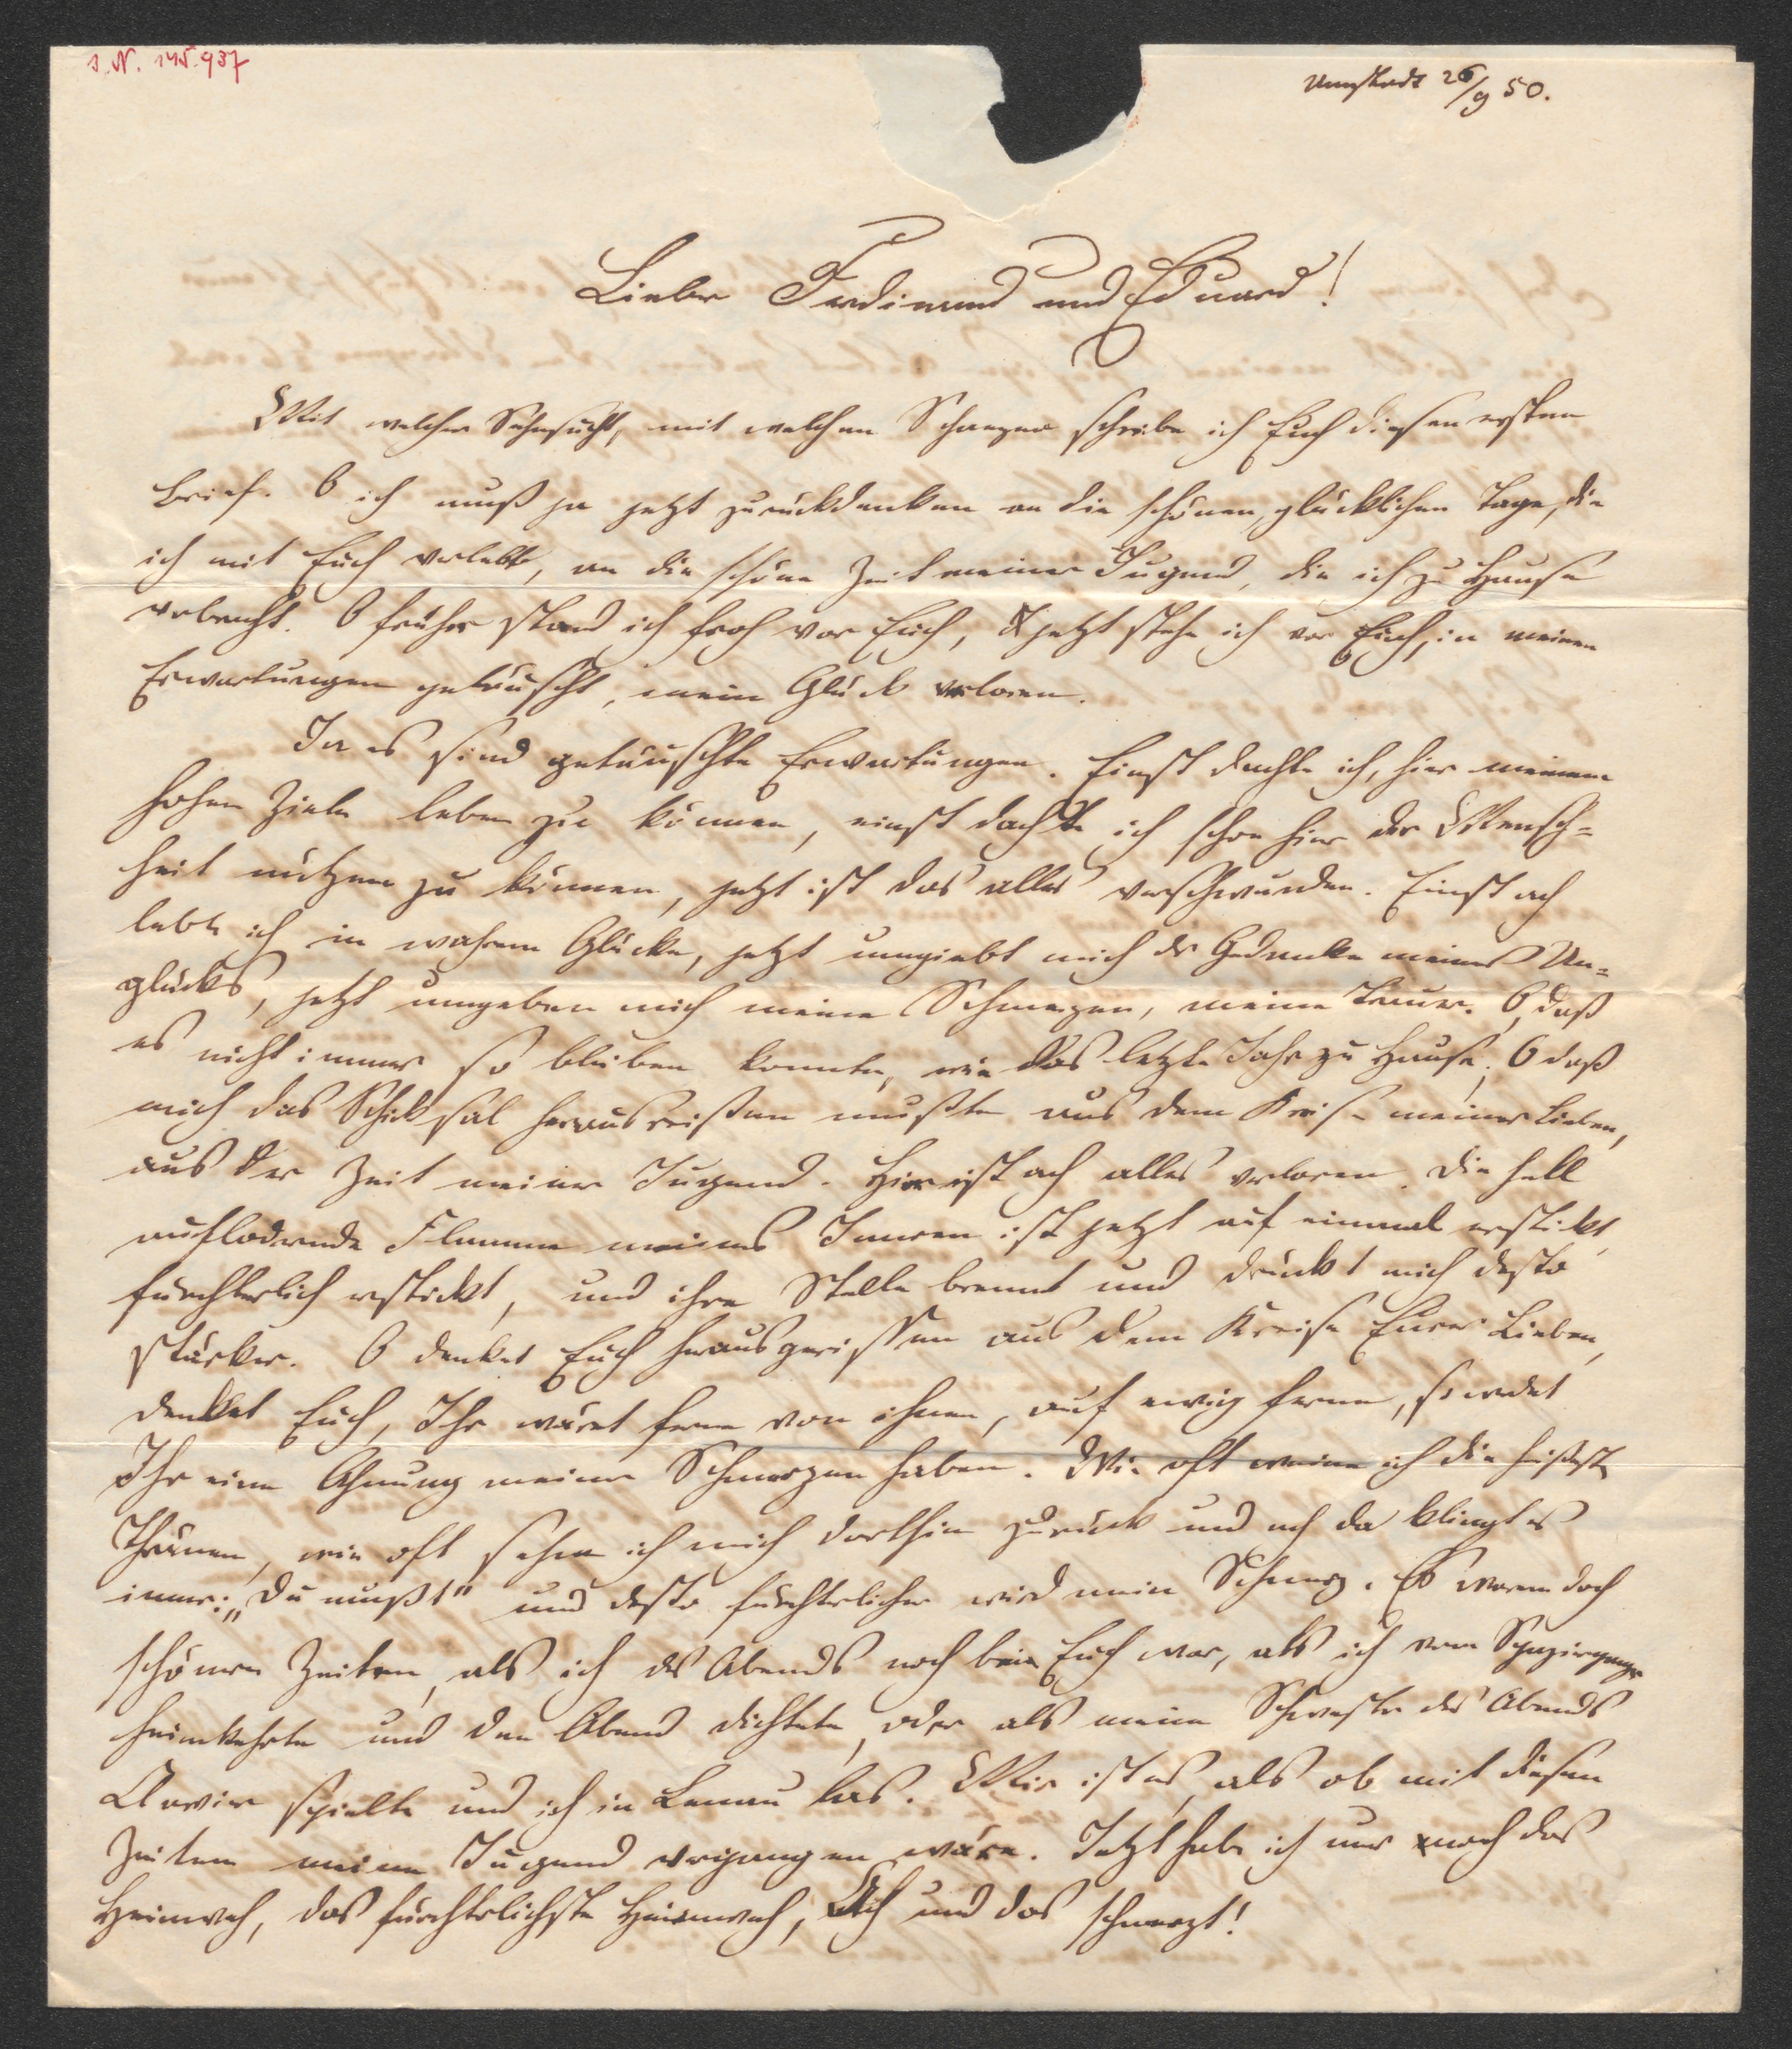 I. N. 145.937
Umstadt 26/9 50.
Liebe Ferdinand und Eduard!
Mit welcher Sehnsucht, mit welchen Schmerzen schreibe ich Euch diesen ersten
Brief. O ich muß ja jetzt zurückdenken an die schönen, glücklichen Tage, die
ich mit Euch verlebte, an die schöne Zeit meiner Jugend, die ich zu Hause
verbracht. O früher stand ich froh vor Euch, jetzt stehe ich vor Euch, in meinen
Erwartungen getäuscht, mein Glück verloren.
Ja es sind getäuschte Erwartungen. Einst dachte ich, hier meinem
hohen Ziele leben zu können, einst dachte ich schon hier der Mensch-
heit nützen zu können, jetzt ist das alles verschwunden. Einst ach
lebte ich in wahrem Glücke, jetzt umgiebt mich der Gedanke meines Un-
glücks, jetzt umgeben mich meine Schmerzen, meine Trauer. O, daß
es nicht immer so bleiben konnte, wie das letzte Jahr zu Hause, O daß
mich das Schicksal herausreißen mußte aus dem Kreise meiner Lieben,
aus der Zeit meiner Jugend. Hier ist ach alles verloren. Die hell
auflodernde Flamme meines Innern ist jetzt auf einmal erstickt,
fürchterlich erstickt, und ihre Stelle brennt und drückt mich desto
stärker. O denket Euch herausgerissen aus dem Kreise Eurer Lieben,
denket Euch, Ihr wäret ferne von ihnen, auf ewig ferne, so werdet
Ihr eine Ahnung meiner Schmerzen haben. Wie oft weine ich die heißesten
Thränen, wie oft sehne ich mich dorthin zurück und ach da klingt es
immer: „Du mußt" und desto fürchterlicher wird mein Schmerz. Es waren doch
schönere Zeiten, als ich des Abends noch bei Euch war, als ich vom Spaziergange
heimkehrte und den Abend dichtete, oder als meine Schwester des Abends
Clavier spielte und ich in Lenau las. Mir ist es, als ob mit diesen
Zeiten meine Jugend vergangen wäre. Jetzt habe ich nur noch das
Heimweh, das fürchterlichste Heimweh, Ach und das schmerzt!